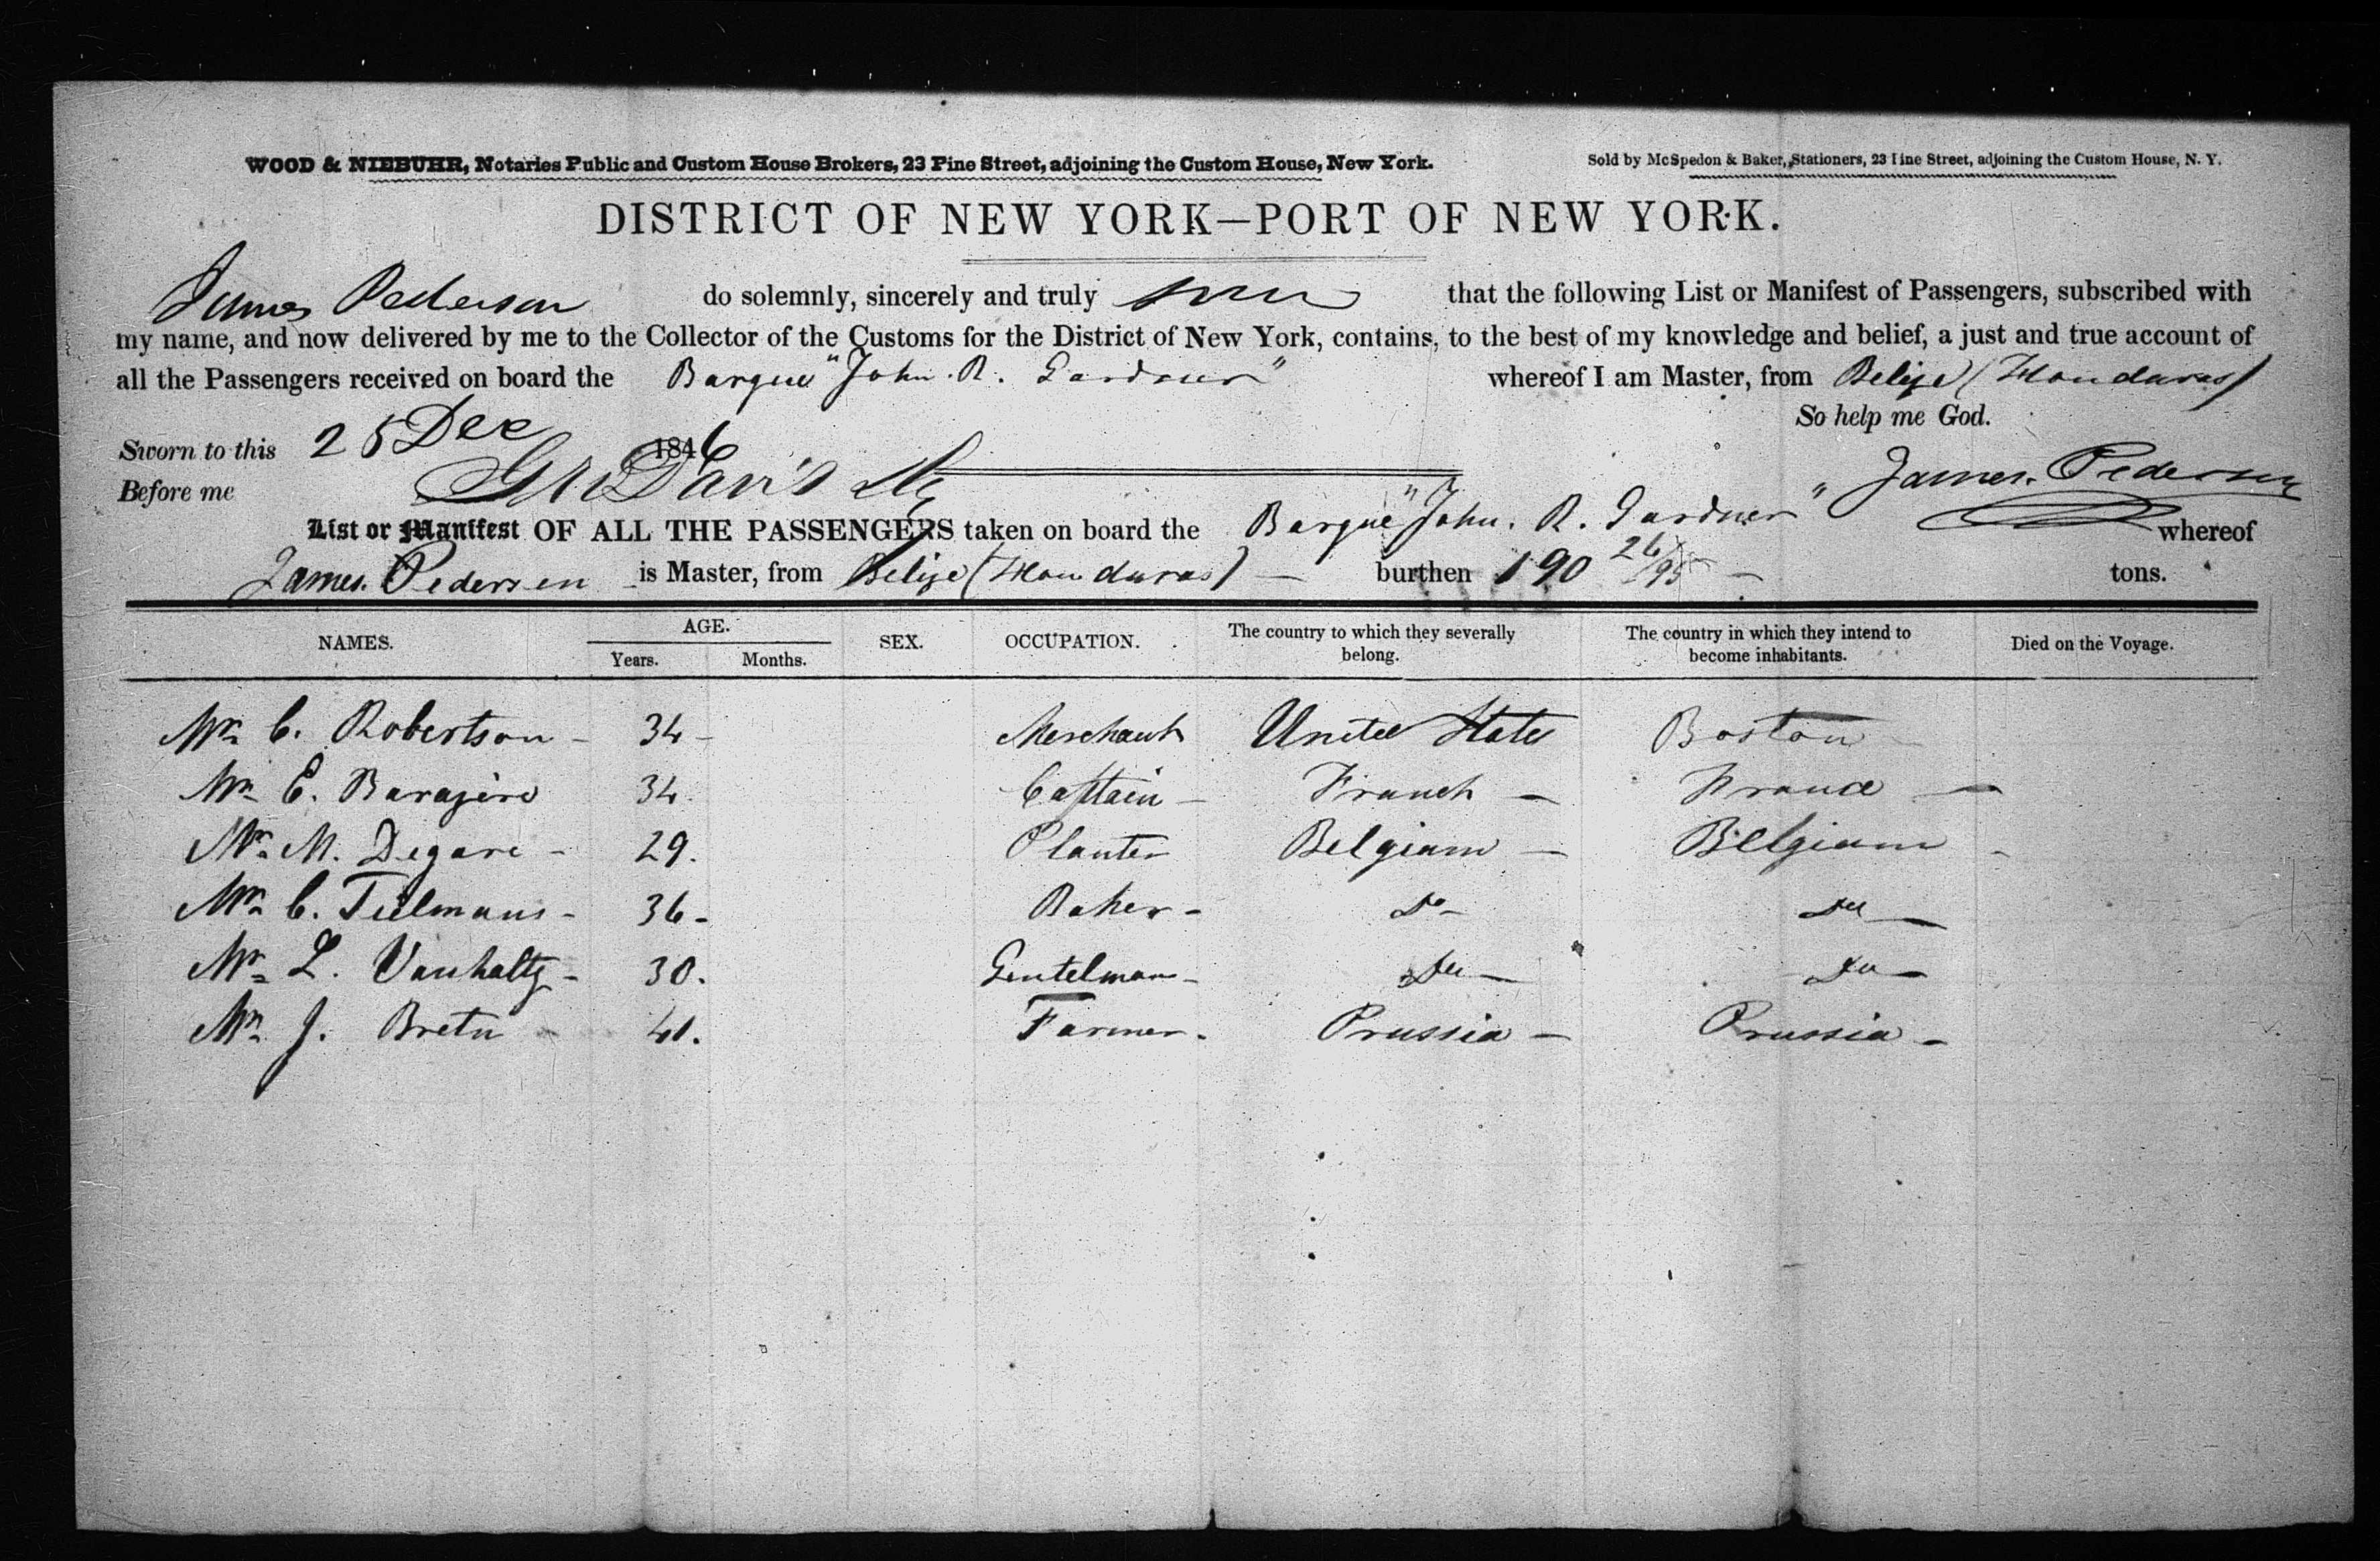 WOOD & NIEBUHR, Notaries Public and Custom House Brokers, 23 Pine Street, adjoining the Custom House, New York.
Sold by McSpedon & Baker, Stationers, 23 Pine Street, adjoining the Custom House, N. Y.
DISTRICT OF NEW YORK—PORT OF NEW YORK.
James Pedersen do solemnly, sincerely and truly that the following List or Manifest of Passengers, subscribed with
my name, and now delivered by me to the Collector of the Customs for the District of New York, contains, to the best of my knowledge and belief, a just and true account of
all the Passengers received on board the Barque "John. R. Gardner" whereof I am Master, from Belize (Honduras)
So help me God.
Sworn to this 25 Dec 1846
Before me Davis James. Pedersen
List or Manifest OF ALL THE PASSENGERS taken on board the Barque "John. R. Gardner" whereof
James. Pedersen is Master, from Belize (Honduras) — burthen 190 26/95 — tons.
NAMES. AGE. Years. Months. SEX. OCCUPATION. The country to which they severally belong. The country in which they intend to become inhabitants. Died on the Voyage.
Mr. C. Robertson - 34 - Merchant United States Boston -
Mr. E. 34. Captain - French - France -
Mr. M. Degare - 29. Planter Belgium - Belgium -
Mr. C. Tielmans - 36 - Baker - Do - Do -
Mr. L. Vanhaltz - 30. Gentelman - Do - Do -
Mr. J. Bretu - 41. Farmer. Prussia - Prussia -